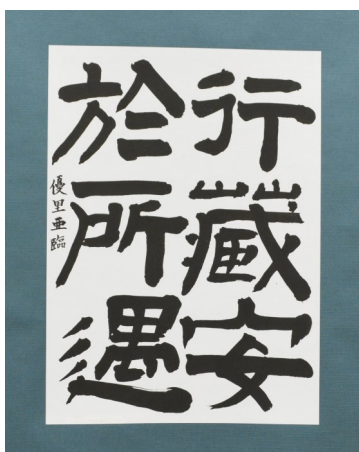 行藏安
於所遇
優里亜臨